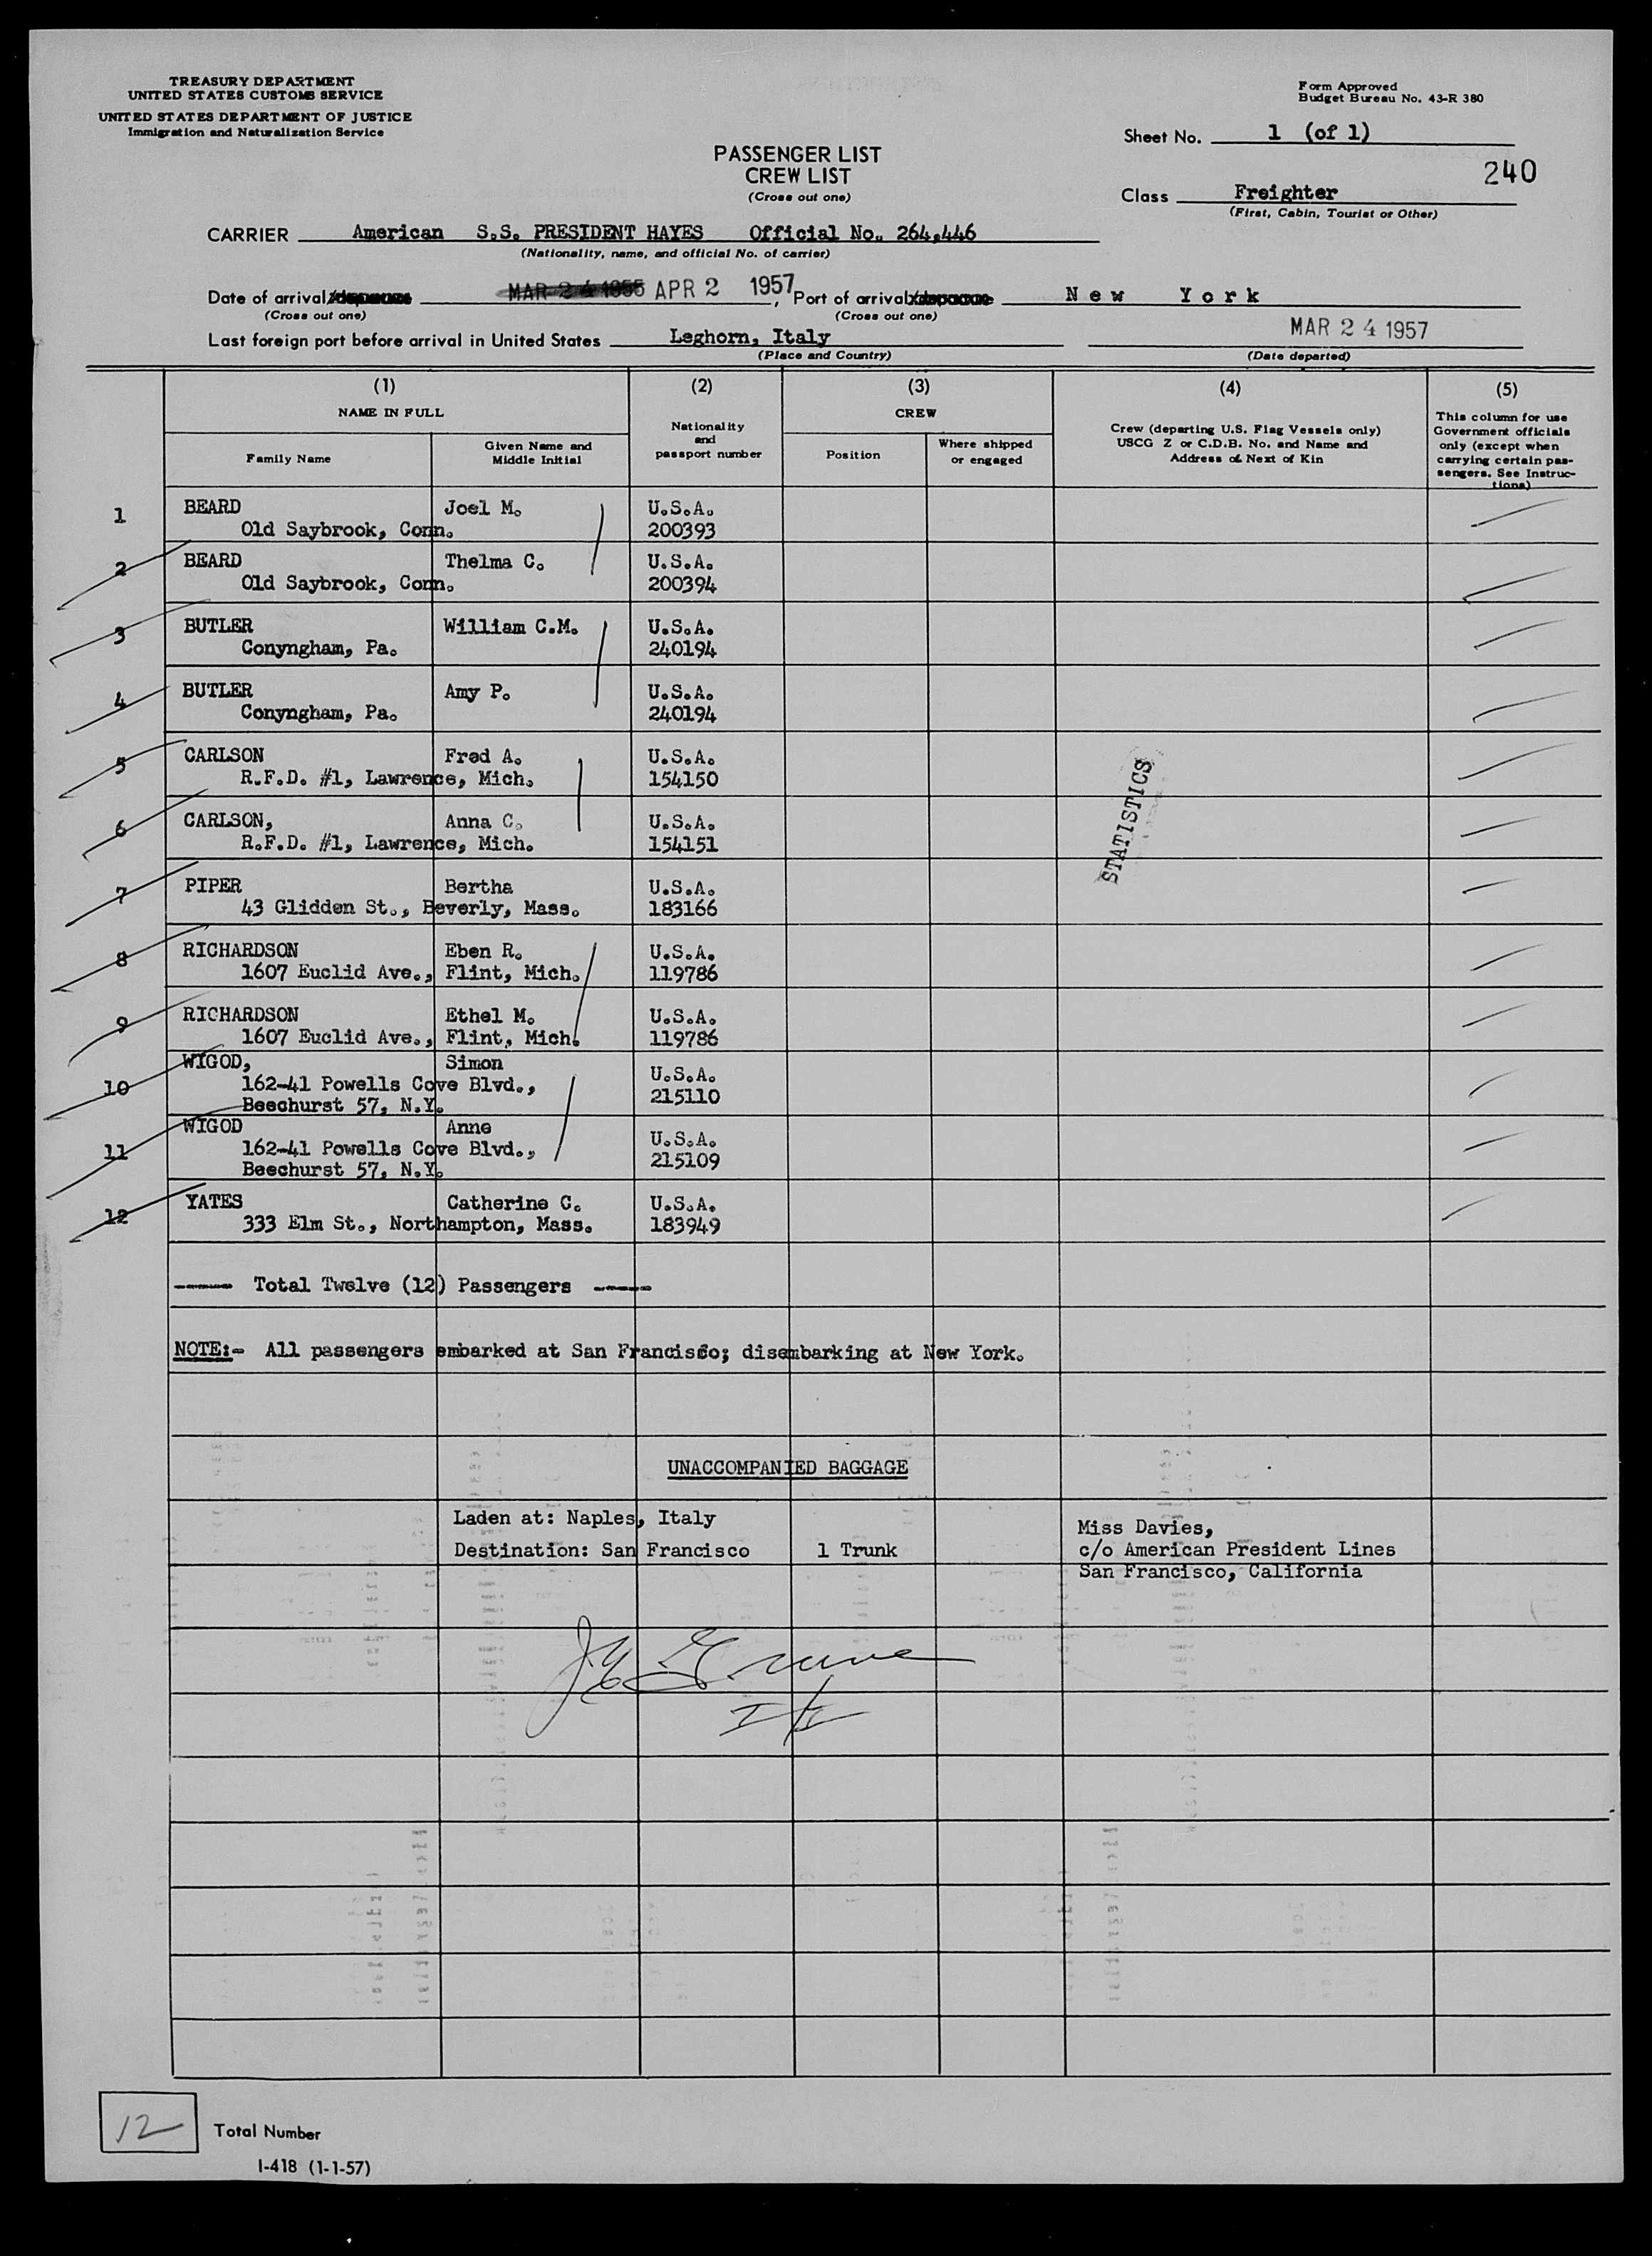 TREASURY DEPARTMENT
UNITED STATES CUSTOMS SERVICE
UNITED STATES DEPARTMENT OF JUSTICE
Immigration and Naturalization Service
Form Approved
Budget Bureau No. 43-R 380
Sheet No. 1 (of 1)
PASSENGER LIST
CREW LIST
(Cross out one)
240
Class Freighter
(First, Cabin, Tourist or Other)
CARRIER American S.S. PRESIDENT HAYES Official No. 264,446
(Nationality, name, and official No. of carrier)
Date of arrival MAR 2 4 1955 APR 2 1957, Port of arrival New York
(Cross out one) (Cross out one)
Last foreign port before arrival in United States Leghorn, Italy MAR 2 4 1957
(Place and Country) (Date departed)
(1) (2) (3) (4) (5)
NAME IN FULL
Nationality
and
passport number
CREW
Crew (departing U.S. Flag Vessels only)
USCG Z or C.D.B. No. and Name and
Address of Next of Kin
This column for use
Government officials
only (except when
carrying certain pas-
sengers. See Instruc-
tions)
Family Name
Given Name and
Middle Initial
Position
Where shipped
or engaged
1 BEARD Joel M. U.S.A.
Old Saybrook, Conn. 200393
2 BEARD Thelma C. U.S.A.
Old Saybrook, Conn. 200394
3 BUTLER William C.M. U.S.A.
Conyngham, Pa. 240194
4 BUTLER Amy P. U.S.A.
Conyngham, Pa. 240194
5 CARLSON Fred A. U.S.A.
R.F.D. #1, Lawrence, Mich. 154150
6 CARLSON, Anna C. U.S.A.
R.F.D. #1, Lawrence, Mich. 154151
STATISTICS
7 PIPER Bertha U.S.A.
43 Glidden St., Beverly, Mass. 183166
8 RICHARDSON Eben R. U.S.A.
1607 Euclid Ave., Flint, Mich. 119786
9 RICHARDSON Ethel M. U.S.A.
1607 Euclid Ave., Flint, Mich. 119786
10 WIGOD, Simon U.S.A.
162-41 Powells Cove Blvd., 215110
Beechurst 57, N.Y.
11 WIGOD Anne U.S.A.
162-41 Powells Cove Blvd., 215109
Beechurst 57, N.Y.
12 YATES Catherine C. U.S.A.
333 Elm St., Northampton, Mass. 183949
----- Total Twelve (12) Passengers -----
NOTE:- All passengers embarked at San Francisco; disembarking at New York.
UNACCOMPANIED BAGGAGE
Laden at: Naples, Italy
Destination: San Francisco 1 Trunk
Miss Davies,
c/o American President Lines
San Francisco, California
12 Total Number
I-418 (1-1-57)